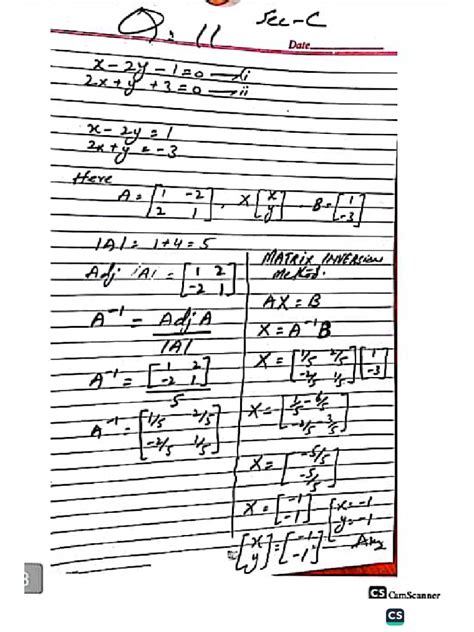 Q. 11 Sec-C
Date
x - 2y - 1 = 0 — i
2x + y + 3 = 0 — ii
x - 2y = 1
2x + y = -3
Here
A = [1 -2; 2 1], X [x; y] . B = [1; -3]
|A| = 1 + 4 = 5
Adj |A| = [1 2; -2 1]
A⁻¹ = Adj A / |A|
A⁻¹ = [1 2; -2 1] / 5
A⁻¹ = [1/5 2/5; -2/5 1/5]
MATRIX INVERSION
AX = B
X = A⁻¹B
X = [1/5 2/5; -2/5 1/5] [1; -3]
X = [1/5 - 6/5; -2/5 - 3/5]
X = [-5/5; -5/5]
X = [-1; -1] [x = -1; y = -1
[x; y] = [-1; -1] — Ans
3
CS CamScanner
CS